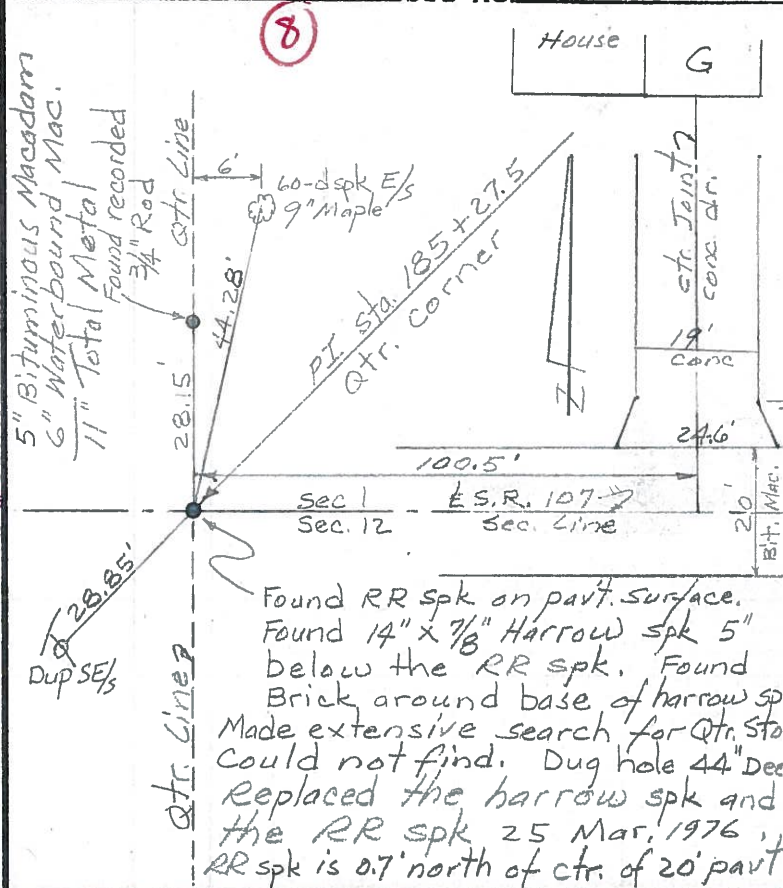 8
House
G
5" Bituminous Macadam
6" Waterbound Mac.
11" Total Metal
Found recorded
3/4" Rod
Qtr. Line
6'
60-d spk E/s
9" Maple
44.28'
28.15'
P.I. Sta. 185+27.5
Qtr. Corner
ctr. Joint
conc dr.
19'
conc
24.6'
100.5'
Sec 1
Sec. 12
S.R. 107
Sec. Line
20'
Bit. Mac.
28.85'
Dup SE/s
Qtr. Line
Found RR spk on pav't. surface.
Found 14" x 7/8" Harrow spk 5"
below the RR spk. Found
Brick around base of harrow sp
Made extensive search for Qtr. Sto
Could not find. Dug hole 44" Dee
Replaced the harrow spk and
the RR spk 25 Mar. 1976.
RR spk is 0.7' north of ctr. of 20' pav't